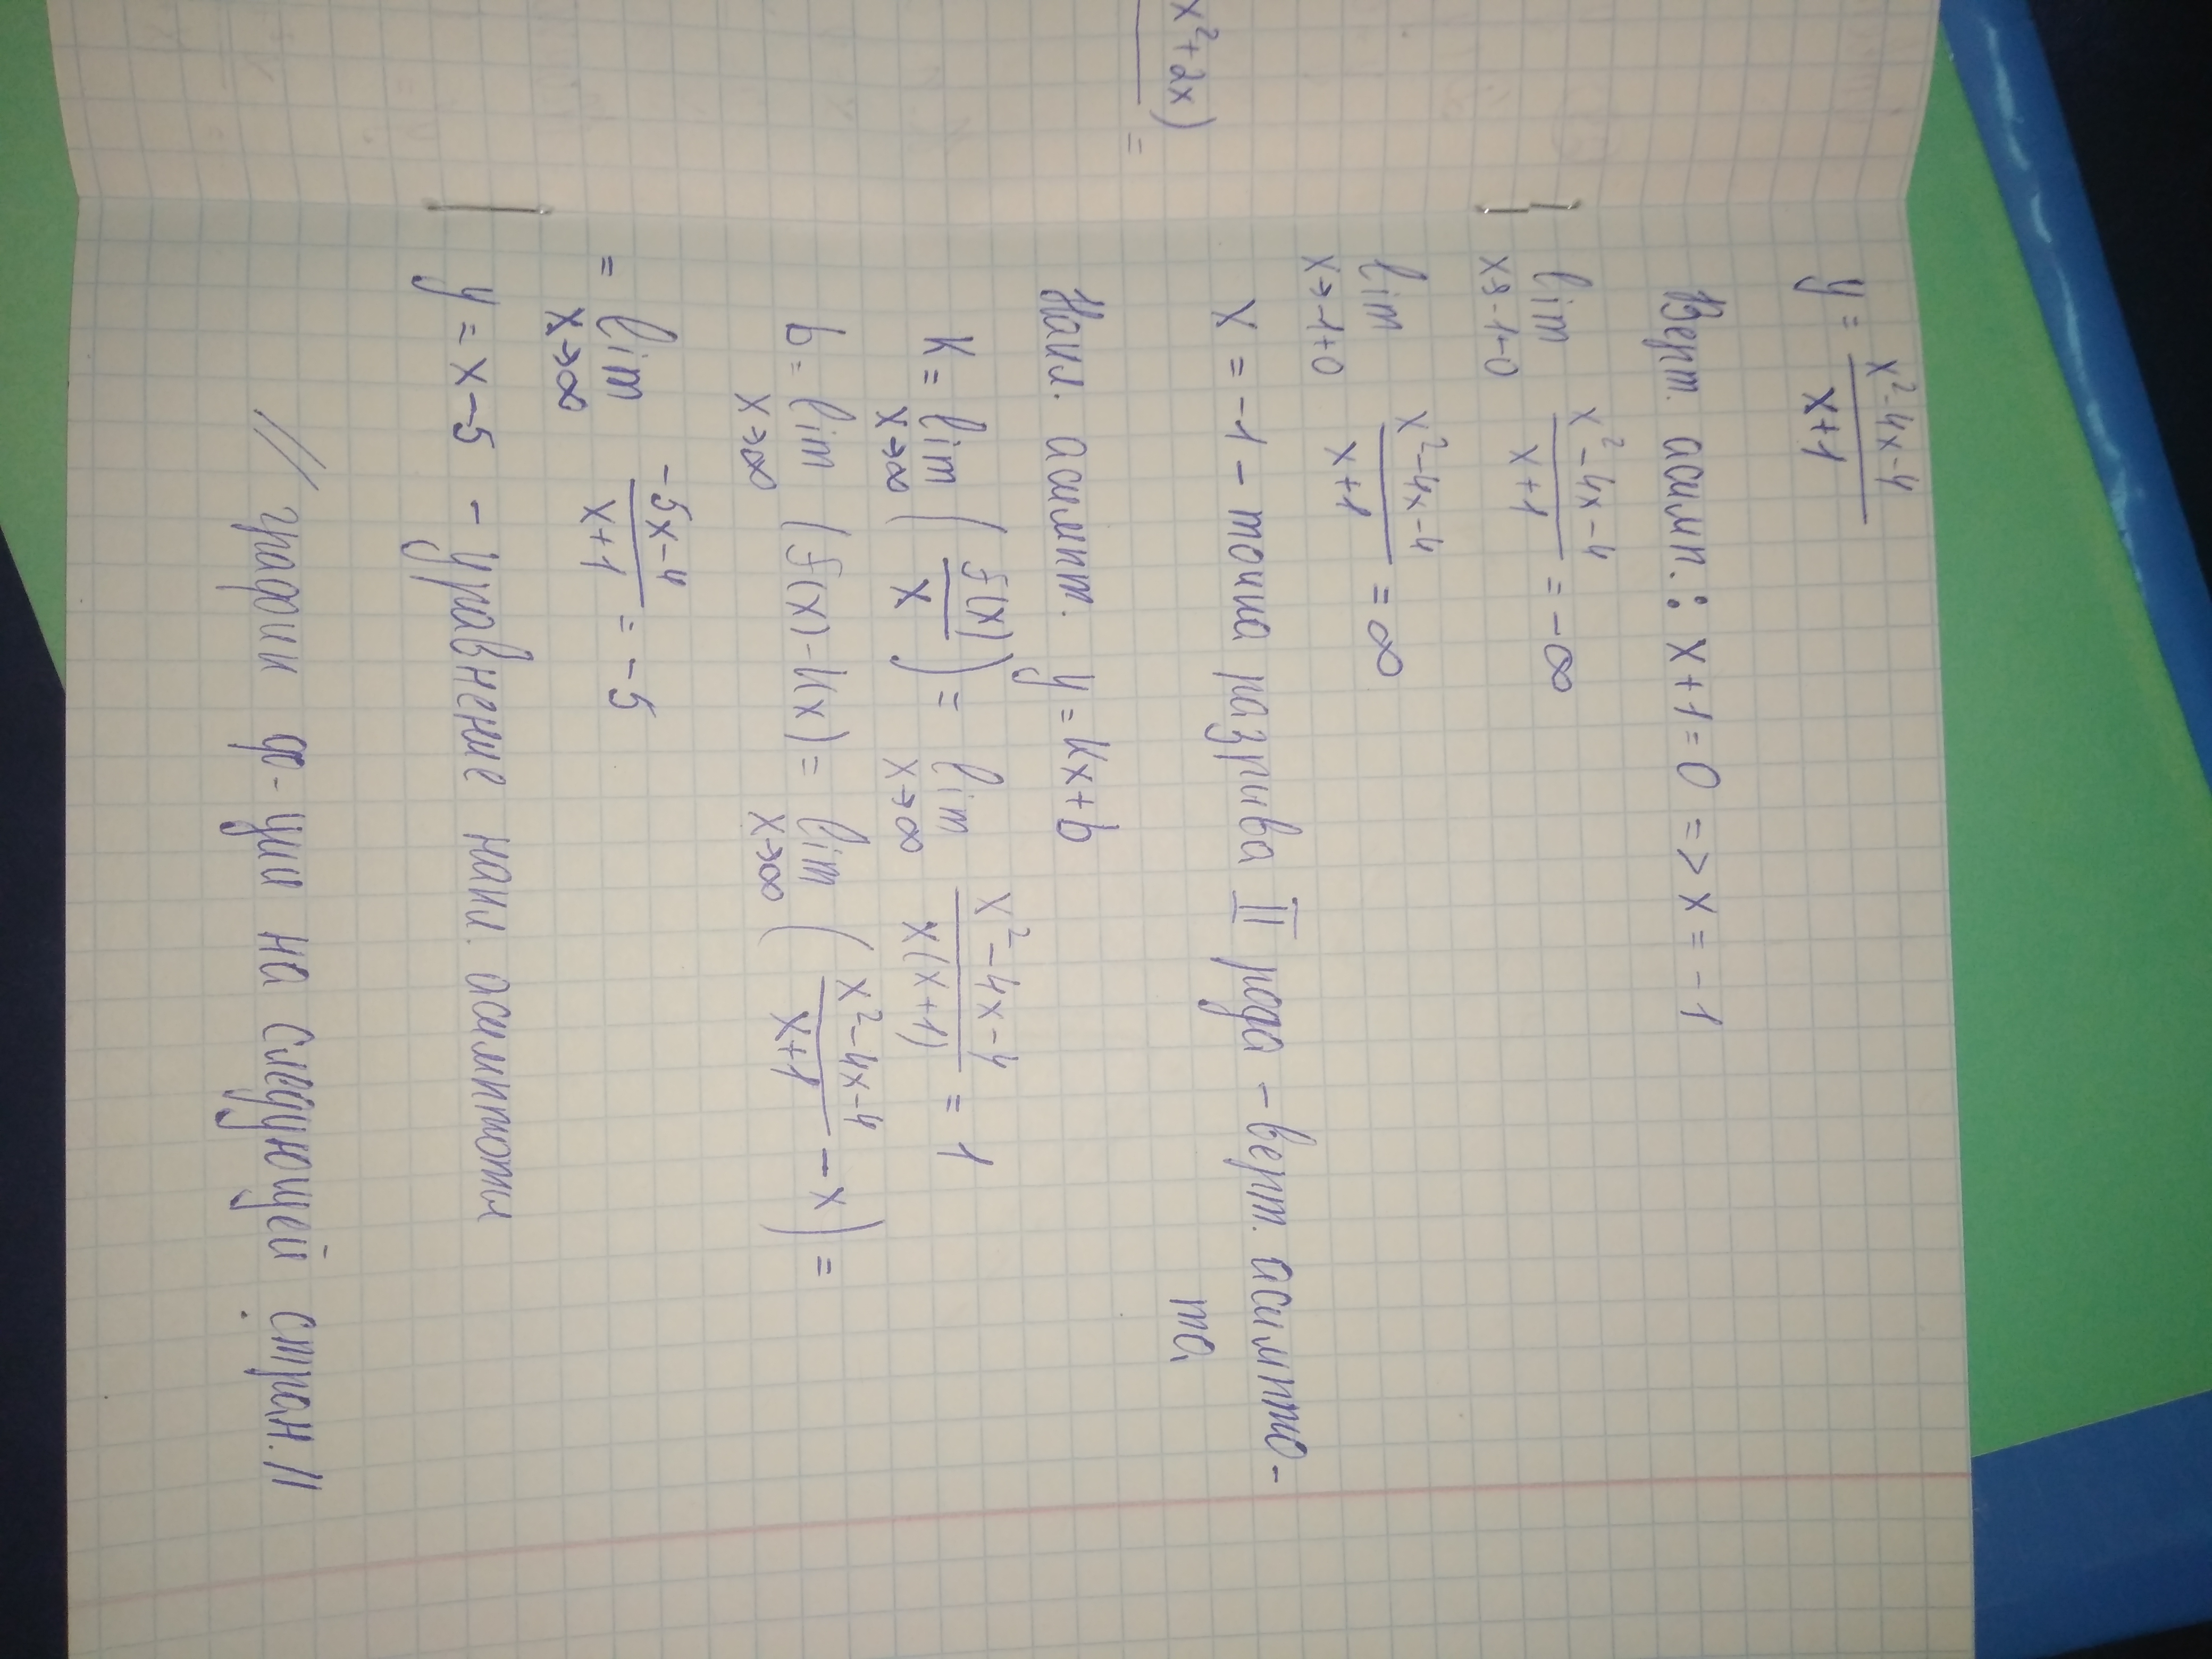 y = \frac{x^2-4x-4}{x+1}
Верт. асимп.: x+1=0 => x = -1
x^2+2x) =
\lim_{x→-1-0} \frac{x^2-4x-4}{x+1} = -∞
\lim_{x→-1+0} \frac{x^2-4x-4}{x+1} = ∞
x = -1 – точка разрыва II рода – верт. асимпто-
та.
Накл. асимпт. y = kx+b
K = \lim_{x→∞} ( \frac{f(x)}{x} ) = \lim_{x→∞} \frac{x^2-4x-4}{x(x+1)} = 1
b = \lim_{x→∞} (f(x)-kx) = \lim_{x→∞} ( \frac{x^2-4x-4}{x+1} - x ) =
= \lim_{x→∞} \frac{-5x-4}{x+1} = -5
y = x-5 – уравнение накл. асимптоты
// график ф-ции на следующей стран. //